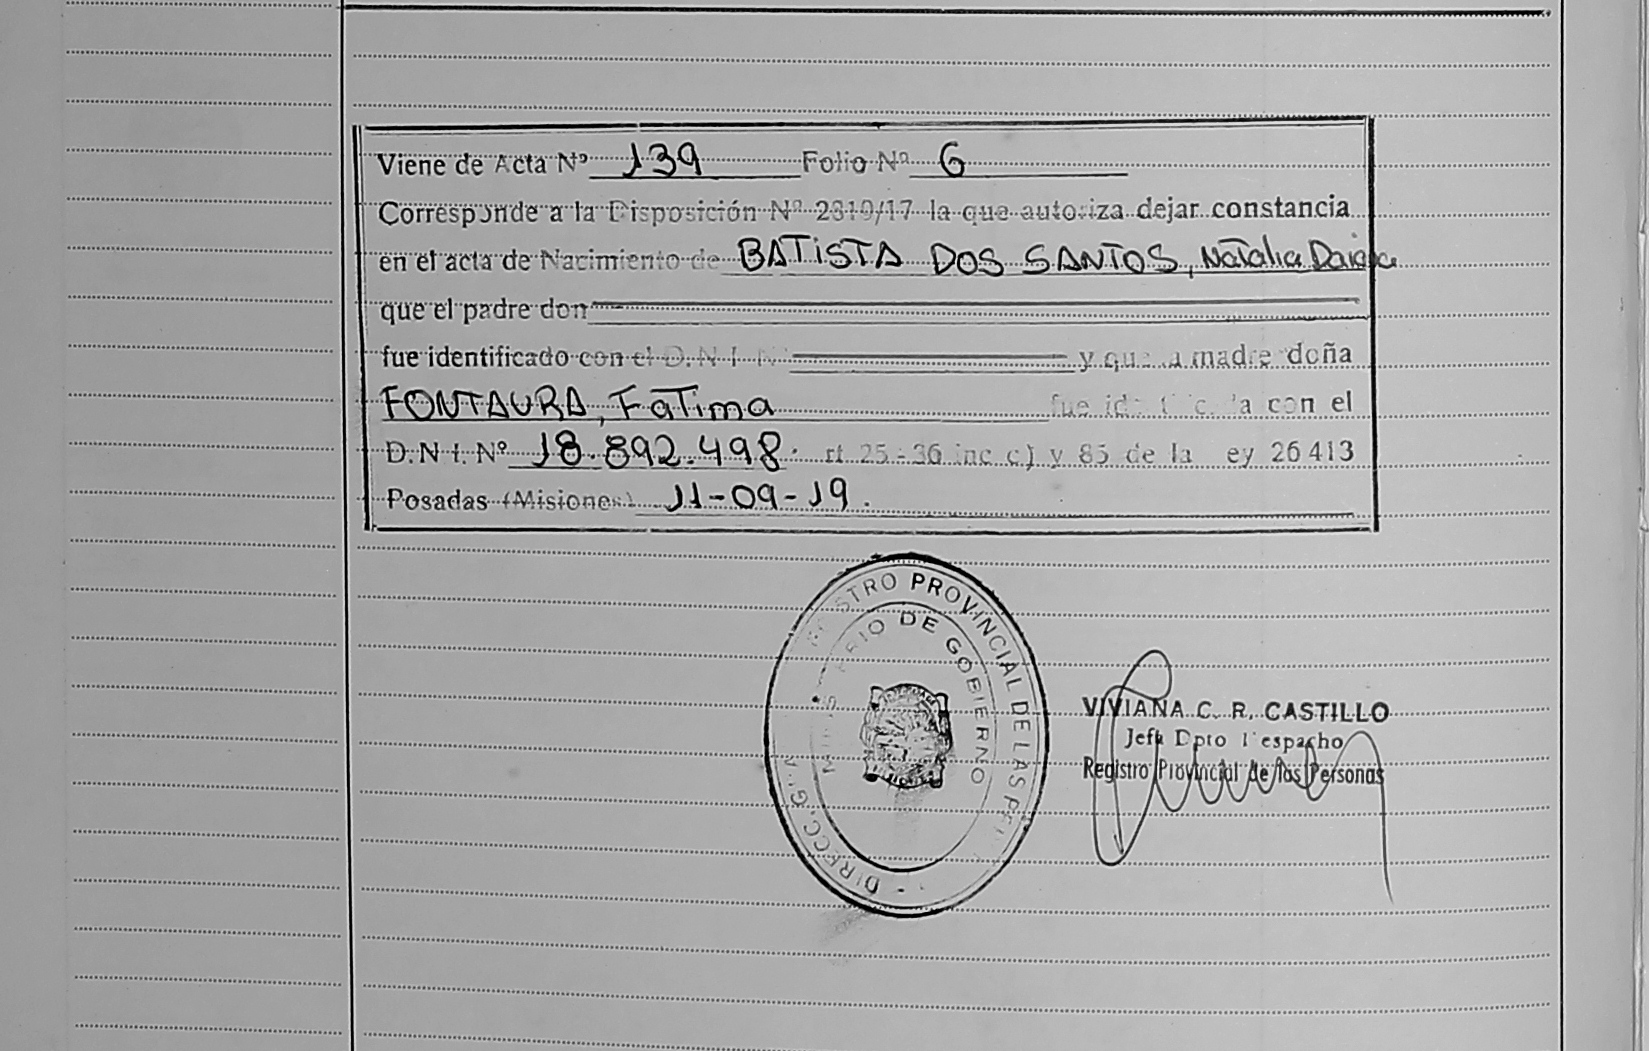 Viene de Acta Nº 139 Folio Nº 6
Corresponde a la Disposición Nº 2310/17 la que autoriza dejar constancia
en el acta de Nacimiento de BATISTA DOS SANTOS, Natalia
que el padre don
fue identificado con el D.N.I. Nº y que la madre doña
FONTAURA, Fatima fue con el
D.N.I. Nº 18.892.498 rt 25-36 inc c) y 85 de la ey 26413
Posadas (Misiones) 11-09-19.
DIRECC. PROVINCIAL DE LAS
DE GOBIERNO
VIVIANA C. R. CASTILLO
Jefa Dpto Despacho
Registro Provincial de las Personas